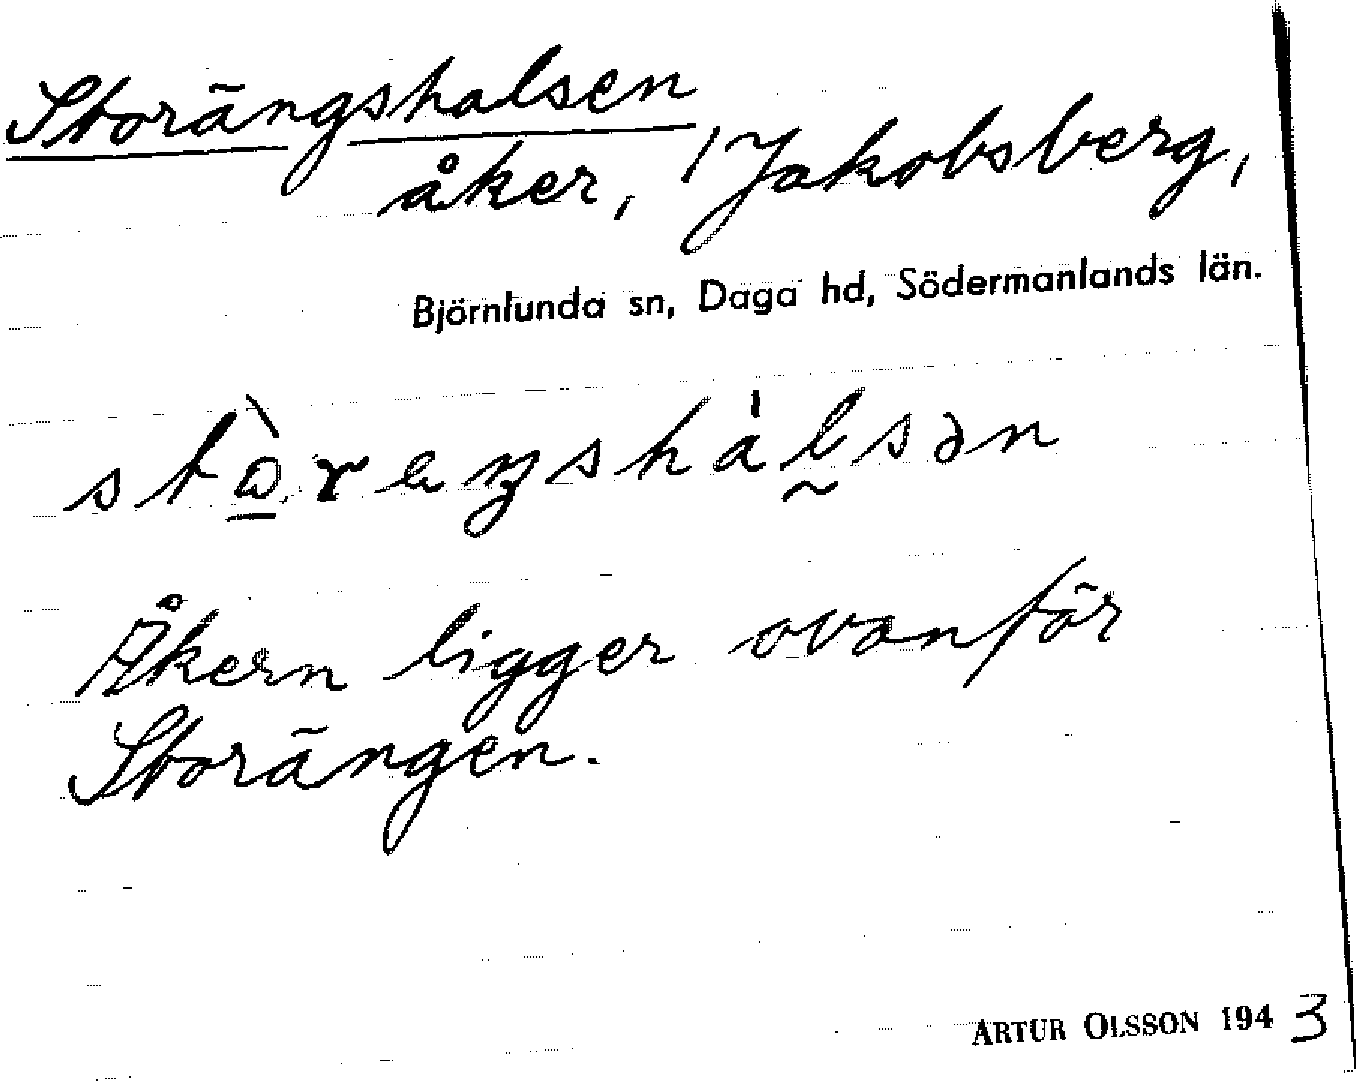 Storängshalsen
åker, Jakobsberg,
Björnlunda sn, Daga hd, Södermanlands län.
Åkern ligger ovanför
Storängen.
ARTUR OLSSON 1943